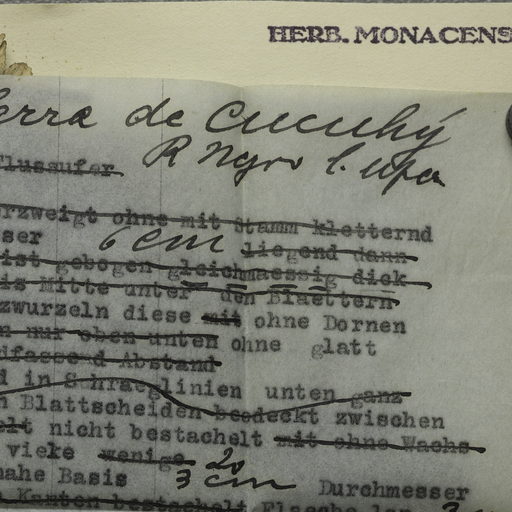 HERB. MONACENS
erra de Cucuhy
Flussufer R Ngro
erzweigt ohne mit Stamm kletternd
ser 6 cm liegend dann
ist gebogen gleichmaessig dick
is Mitte unter den Blaettern
zwurzeln diese mit ohne Dornen
n nur oben unten ohne glatt
dfassend Abstand
d in Schraeglinien unten ganz
n Blattscheiden bedeckt zwischen
elt nicht bestachelt mit ohne Wachs
vieke wenige 20
nahe Basis 3 cm Durchmesser
Kanten bestachelt Flaeche